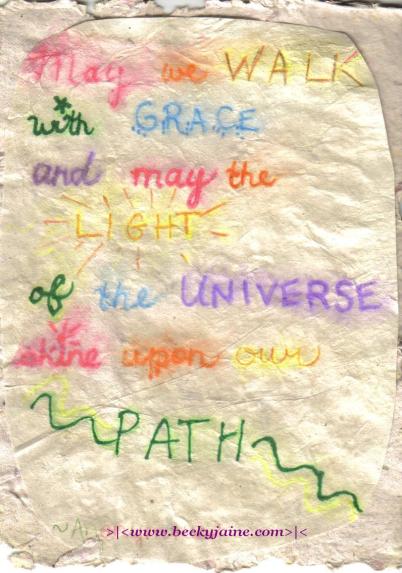 May we WALK
with GRACE
and may the
LIGHT
of the UNIVERSE
shine upon our
PATH
>|<www.beckyjaine.com>|<